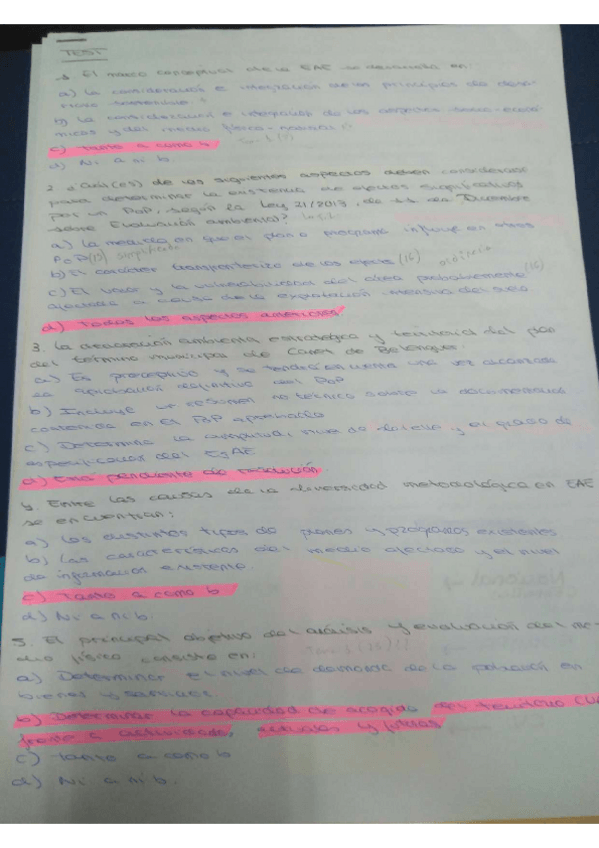 TEST
1. El marco conceptual de la EAE se desarrolla en:
a) La consideración e integración de los principios de desa-
rrollo sostenible
b) La consideración e integración de los aspectos socio-econó-
micos y del medio físico-natural
c) Tanto a como b
d) Ni a ni b.
2. ¿Cuál(es) de los siguientes aspectos deben considerarse
para determinar la existencia de efectos significativos
por un PoP, según la Ley 21/2013, de 11 de Diciembre
sobre Evaluación ambiental?
a) La medida en que el plan o programa influye en otros
PoP (15) simplificada
b) El carácter transfronterizo de los efectos (16) ordinaria
c) El valor y la vulnerabilidad del área probablemente (16)
afectada a causa de la explotación intensiva del suelo
d) Todos los aspectos anteriores
3. La declaración ambiental estratégica y territorial del plan
del término municipal de
a) Es preceptivo y se tendrá en cuenta una vez alcanzada
la aprobación definitiva del PoP
b) Incluye un resumen no técnico sobre la documentación
contenida en el PoP
c) Determina la amplitud, nivel de detalle y el grado de
especificación del EsAE
d) Está pendiente de
4. Entre las causas de la diversidad metodológica en EAE
se encuentran:
a) Los distintos tipos de planes y programas existentes
b) Las características del medio afectado y el nivel
de información existente.
c) Tanto a como b
d) Ni a ni b.
5. El principal objetivo del análisis y evaluación del me-
dio físico consiste en:
a) Determinar el nivel de demanda de la población en
bienes y servicios.
b) Determinar la capacidad de acogida del territorio
frente a actividades, actuales y futuras
c) Tanto a como b
d) Ni a ni b.